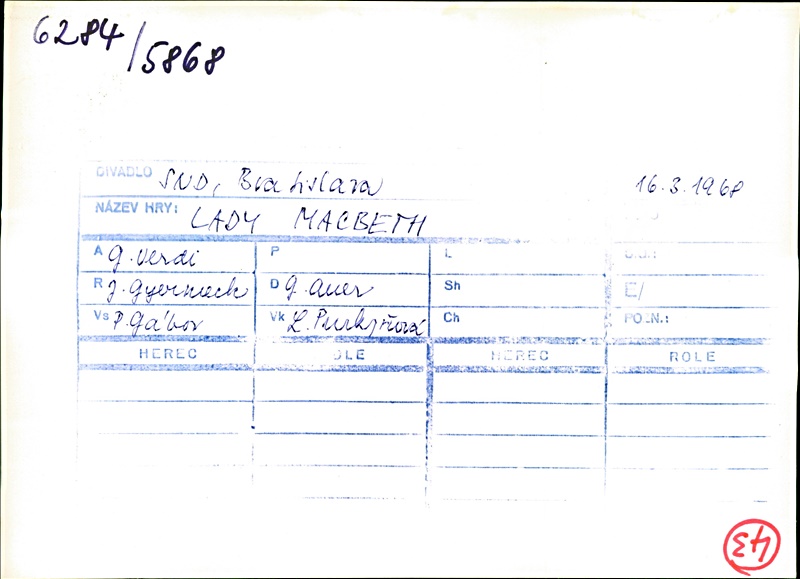 6284/5868
DIVADLO SND, Bratislava 16.3.1968
NÁZEV HRY: LADY MACBETH
A G. Verdi P L Č.J.:
R J. Gyermek D G. Auer Sh E/
Vs P. Gábor Vk L. Purkyňová Ch POZN.:
HEREC ROLE HEREC ROLE
43